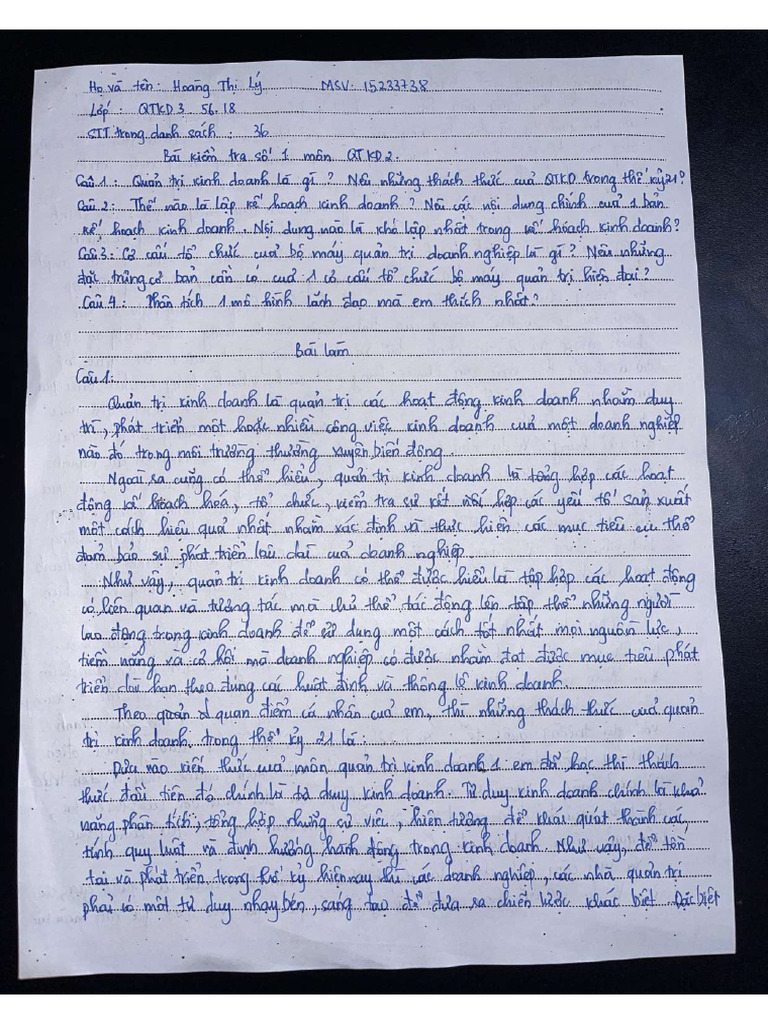 Họ và tên: Hoàng Thị Lý MSV: 15233738
Lớp: QTKD3 56.18
STT trong danh sách: 36
Bài kiểm tra số 1 môn QTKD2.
Câu 1: Quản trị kinh doanh là gì? Nêu những thách thức của QTKD trong thế kỷ 21?
Câu 2: Thế nào là lập kế hoạch kinh doanh? Nêu các nội dung chính của 1 bản
kế hoạch kinh doanh. Nội dung nào là khó lập nhất trong kế hoạch kinh doanh?
Câu 3: Cơ cấu tổ chức của bộ máy quản trị doanh nghiệp là gì? Nêu những
đặc trưng cơ bản cần có của 1 cơ cấu tổ chức bộ máy quản trị hiện đại?
Câu 4: Phân tích 1 mô hình lãnh đạo mà em thích nhất?
Bài làm
Câu 1:
Quản trị kinh doanh là quản trị các hoạt động kinh doanh nhằm duy
trì, phát triển một hoặc nhiều công việc kinh doanh của một doanh nghiệp
nào đó trong môi trường thường xuyên biến động.
Ngoài ra cũng có thể hiểu, quản trị kinh doanh là tổng hợp các hoạt
động kế hoạch hoá, tổ chức, kiểm tra sự kết nối hợp các yếu tố sản xuất
một cách hiệu quả nhất nhằm xác định và thực hiện các mục tiêu cụ thể
đảm bảo sự phát triển lâu dài của doanh nghiệp.
Như vậy, quản trị kinh doanh có thể được hiểu là tập hợp các hoạt động
có liên quan và tương tác mà chủ thể tác động lên tập thể những người
lao động trong kinh doanh để sử dụng một cách tốt nhất mọi nguồn lực,
tiềm năng và cơ hội mà doanh nghiệp có được nhằm đạt được mục tiêu phát
triển dài hạn theo đúng các luật định và thông lệ kinh doanh.
Theo quan d quan điểm cá nhân của em, thì những thách thức của quản
trị kinh doanh trong thế kỷ 21 là:
Dựa vào kiến thức của môn quản trị kinh doanh 1 em đã học thì thách
thức đầu tiên đó chính là tư duy kinh doanh. Tư duy kinh doanh chính là khả
năng phân tích, tổng hợp những sự việc, hiện tượng để khái quát thành các
tính quy luật và định hướng hành động trong kinh doanh. Như vậy, để tồn
tại và phát triển trong thế kỷ hiện nay thì các doanh nghiệp, các nhà quản trị
phải có một tư duy nhạy bén, sáng tạo để đưa ra chiến lược khác biệt. Đặc biệt